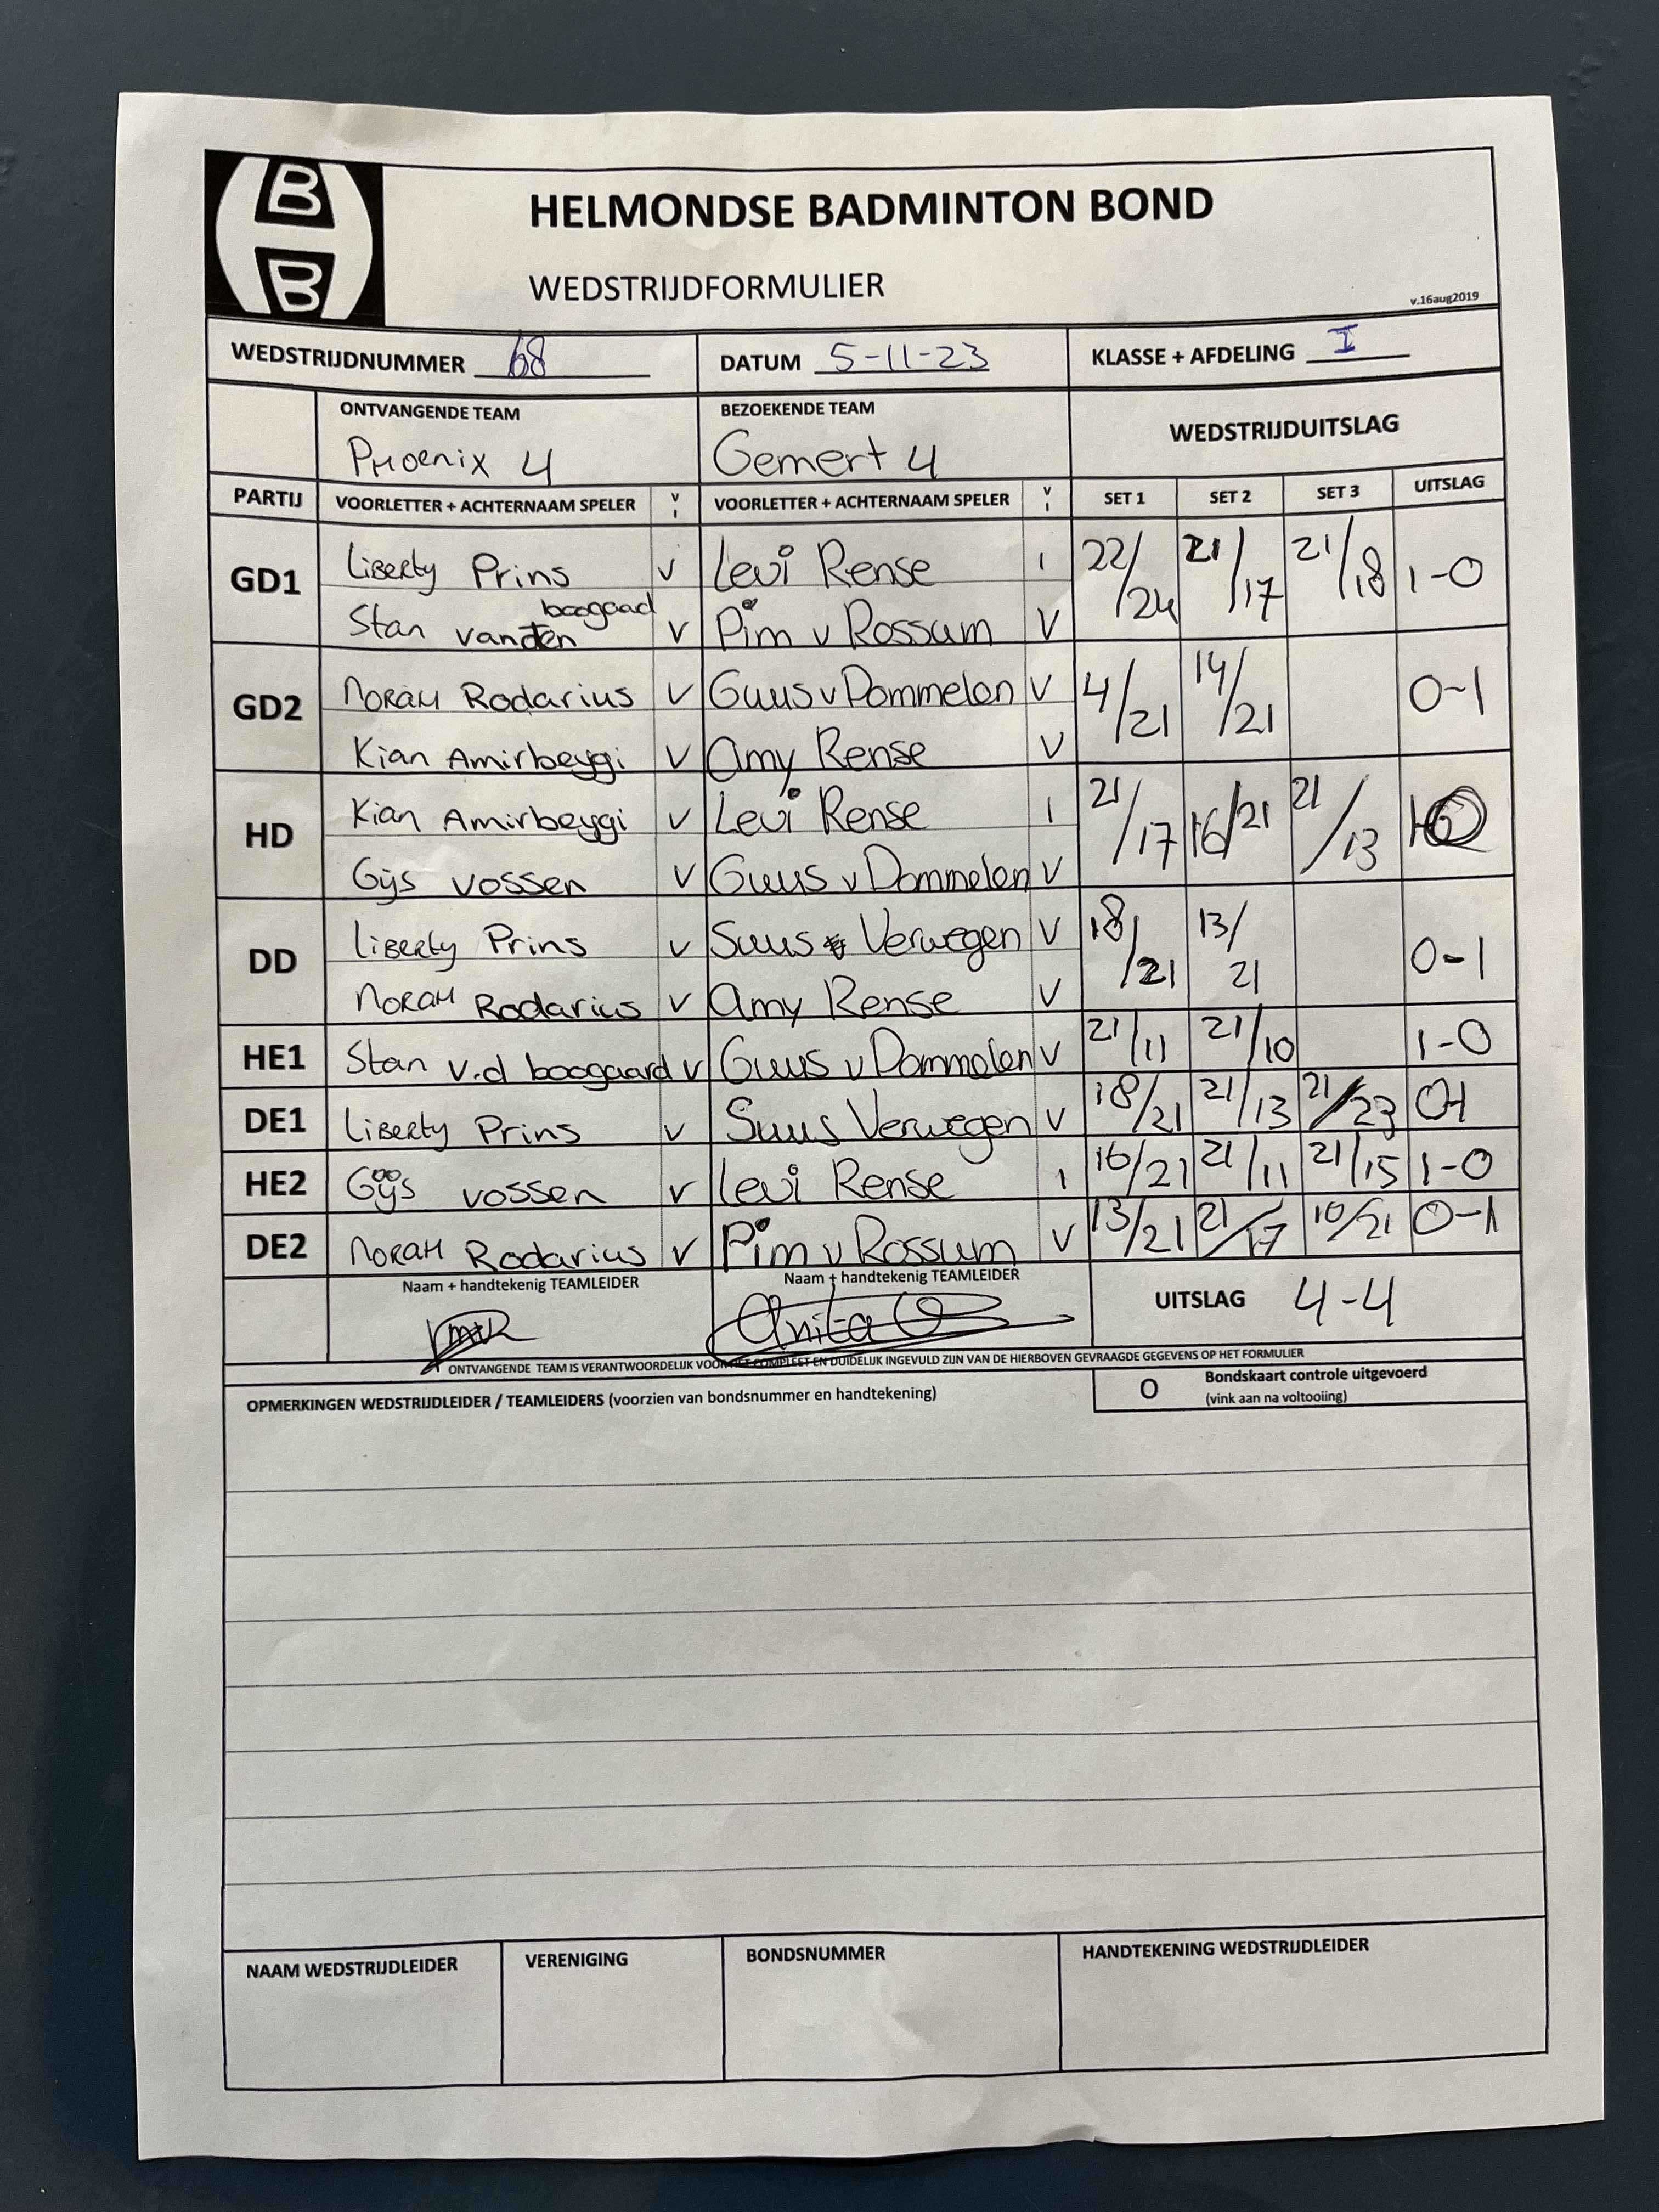 B
B
HELMONDSE BADMINTON BOND
WEDSTRIJDFORMULIER
v.16aug2019
WEDSTRIJDNUMMER 68 DATUM 5-11-23 KLASSE + AFDELING I
ONTVANGENDE TEAM BEZOEKENDE TEAM WEDSTRIJDUITSLAG
Phoenix 4 Gemert 4
PARTIJ VOORLETTER + ACHTERNAAM SPELER V I VOORLETTER + ACHTERNAAM SPELER V I SET 1 SET 2 SET 3 UITSLAG
GD1 Liberty Prins V Levi Rense I 22/24 21/17 21/18 1-0
Stan vanden boogaad V Pim v Rossum V
GD2 Norah Rodarius V Guus v Dommelen V 4/21 14/21 0-1
Kian Amirbeygi V Amy Rense V
HD Kian Amirbeygi V Levi Rense I 21/17 16/21 21/13
Gijs vossen V Guus v Dommelen V
DD Liberty Prins V Suus Verwegen V 18/21 13/21 0-1
Norah Rodarius V Amy Rense V
HE1 Stan v.d boogaard V Guus v Dommelen V 21/11 21/10 1-0
DE1 Liberty Prins V Suus Verwegen V 18/21 21/13 21/23 0-1
HE2 Gijs vossen V Levi Rense I 16/21 21/11 21/15 1-0
DE2 Norah Rodarius V Pim v Rossum V 13/21 21/17 10/21 0-1
Naam + handtekenig TEAMLEIDER Naam + handtekenig TEAMLEIDER UITSLAG 4-4
Anita
ONTVANGENDE TEAM IS VERANTWOORDELIJK VOOR HET COMPLEET EN DUIDELIJK INGEVULD ZIJN VAN DE HIERBOVEN GEVRAAGDE GEGEVENS OP HET FORMULIER
OPMERKINGEN WEDSTRIJDLEIDER / TEAMLEIDERS (voorzien van bondsnummer en handtekening) O Bondskaart controle uitgevoerd
(vink aan na voltooiing)
NAAM WEDSTRIJDLEIDER VERENIGING BONDSNUMMER HANDTEKENING WEDSTRIJDLEIDER